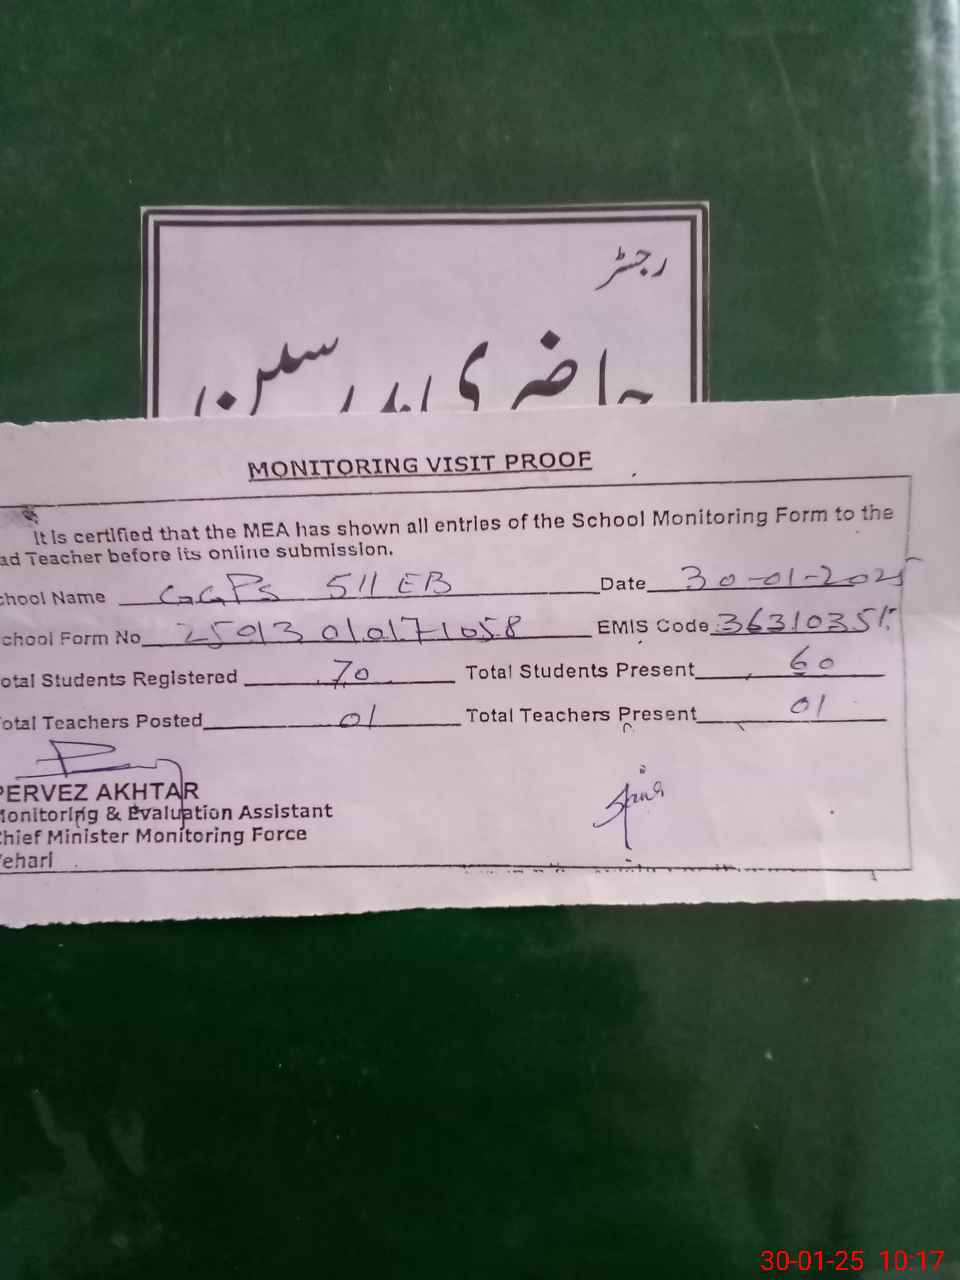 رجسٹر
MONITORING VISIT PROOF
It is certified that the MEA has shown all entries of the School Monitoring Form to the
ad Teacher before its online submission.
chool Name GGPS 511 EB Date 30-01-2025
chool Form No 25013010171058 EMIS Code 36310351
otal Students Registered 70 Total Students Present 60
otal Teachers Posted 01 Total Teachers Present 01
PERVEZ AKHTAR
Monitoring & Evaluation Assistant
Chief Minister Monitoring Force
ehari
30-01-25 10:17